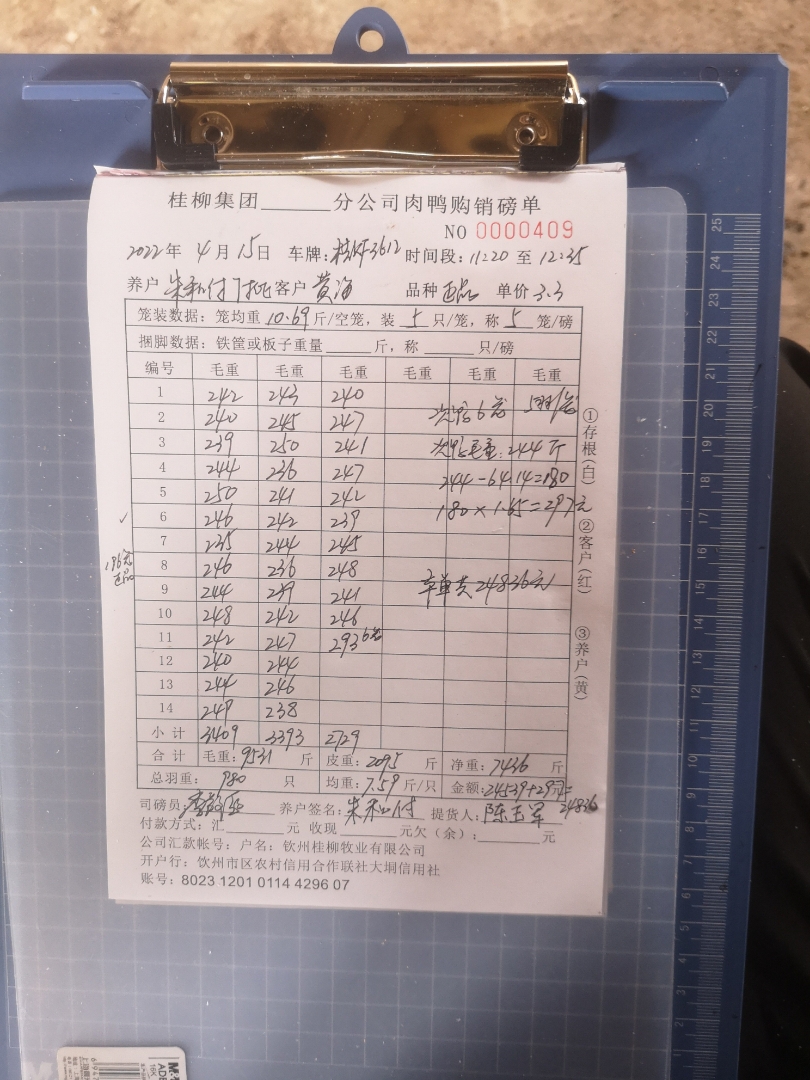 桂柳集团______分公司肉鸭购销磅单
NO 0000409
2022年 4月15日 车牌: 3612 时间段: 11:20 至 12:35
养户 朱 付 客户 黄海 品种 正品 单价 3.3
笼装数据: 笼均重 10.69 斤/空笼, 装 5 只/笼, 称 5 笼/磅
捆脚数据: 铁筐或板子重量______斤, 称______只/磅
编号 毛重 毛重 毛重 毛重 毛重 毛重
1 242 243 240
2 240 245 247 次鸭6笼 5羽/笼
3 239 250 241 次鸭毛重: 244斤
4 244 236 247 244-64.14=180
5 250 241 242 180×1.65=297元
6 246 242 239
7 235 244 245
8 246 236 248
196笼
正品
9 244 239 241 本单共24836元
10 248 242 246
11 242 247 293 6笼
12 240 244
13 244 246
14 249 238
小计 3409 3393 2729
合计 毛重: 9531 斤 皮重: 2095 斤 净重: 7436 斤
总羽重: 980 只 均重: 7.59 斤/只 金额: 24539+297元=
24836
司磅员: 养户签名: 朱 付 提货人: 陈玉军
付款方式: 汇______元 收现______元欠(余): ______元
公司汇款帐号: 户名: 钦州桂柳牧业有限公司
开户行: 钦州市区农村信用合作联社大垌信用社
账号: 8023 1201 0114 4296 07
①存根(白) ②客户(红) ③养户(黄)
25
24
23
22
21
20
19
18
17
16
15
14
13
12
11
10
9
8
7
6
5
4
3
2